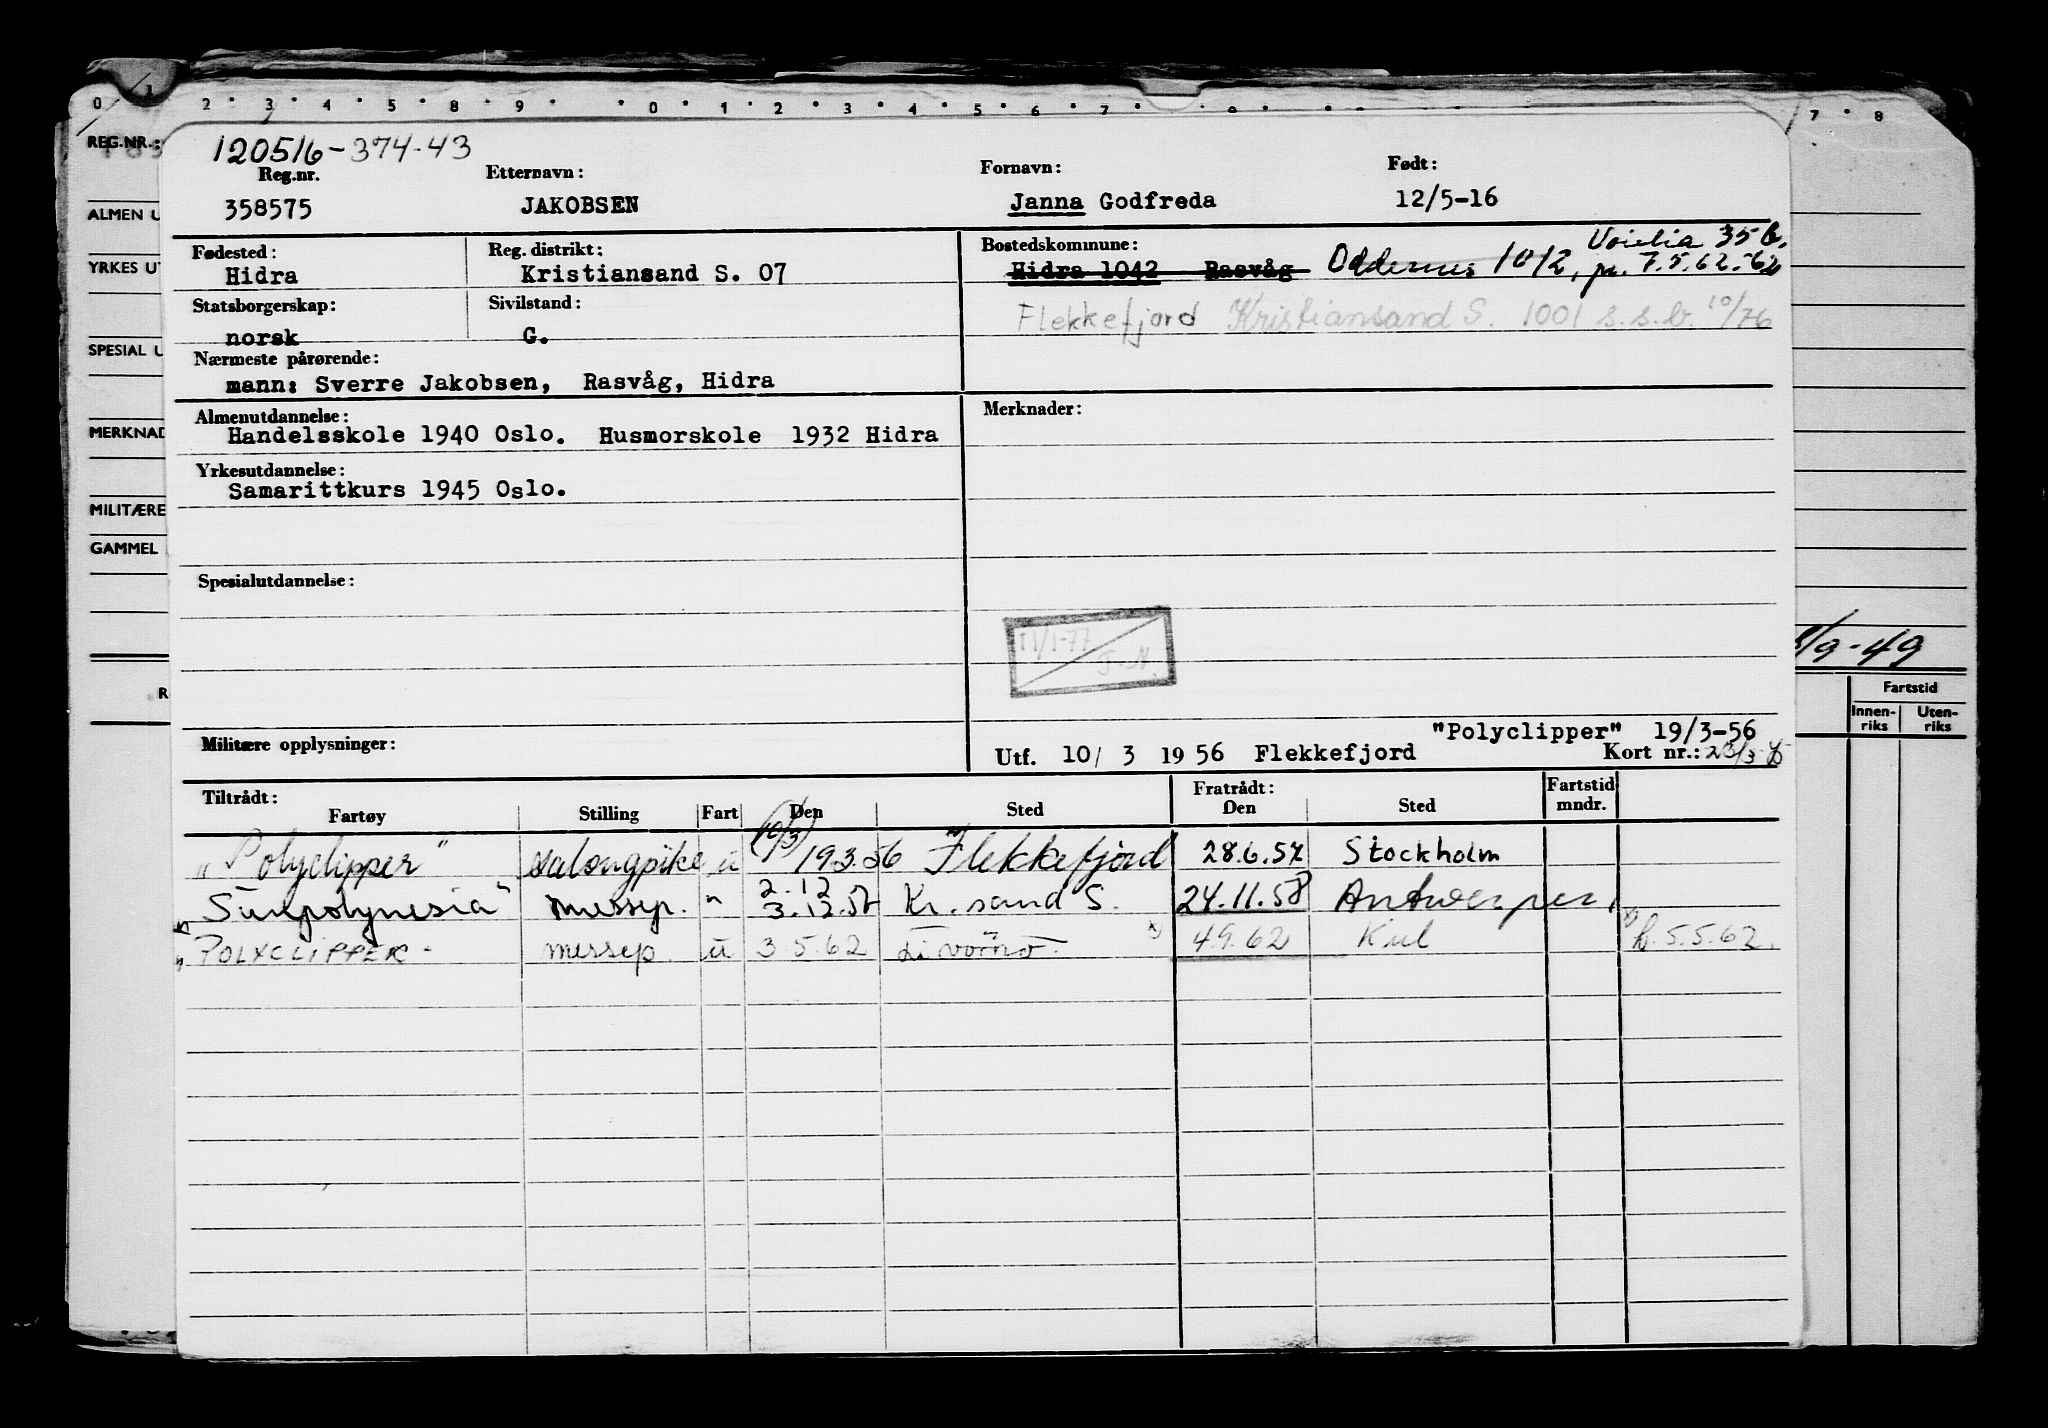 0 1 2 3 4 5 8 9 0 1 2 3 4 5 6 7 7 8
REG.NR.:
120516-374-43
Reg.nr. Etternavn: Fornavn: Født:
358575 JAKOBSEN Janna Godfreda 12/5-16
ALMEN U
YRKES UT
SPECIAL U
MERKNAD
MILITÆRE
GAMMEL
Fødested: Reg. distrikt: Bostedskommune: Voielia 35 b.
Hidra Kristiansand S. 07 Hidra 1042 Rasvåg Oddernes 1012, pr. 7.5.62.
Statsborgerskap: Sivilstand:
norsk G. Flekkefjord Kristiansand S. 1001 s.s.b. 10/76
Nærmeste pårørende:
mann: Sverre Jakobsen, Rasvåg, Hidra
Almenutdannelse: Merknader:
Handelsskole 1940 Oslo. Husmorskole 1932 Hidra
Yrkesutdannelse:
Samarittkurs 1945 Oslo.
Spesialutdannelse:
11/1-77
/9-49
Fartstid
Innen-riks Uten-riks
"Polyclipper" 19/3-56
Militære opplysninger: Utf. 10/ 3 1956 Flekkefjord Kort nr.:
Tiltrådt: Fratrådt: Fartstid mndr.
Fartøy Stilling Fart Den Sted Den Sted
(10/3)
"Polyclipper" salongpike u 19.3.56 Flekkefjord 28.6.57 Stockholm
2.12
"Sunpolynesia" messep. " 3.12.57 Kr.sand S. 24.11.58 Antwerpen
"POLYCLIPPER" messep. u 3 5.62 Livorno x) 4.9.62 Kiel x) h. 5.5.62.